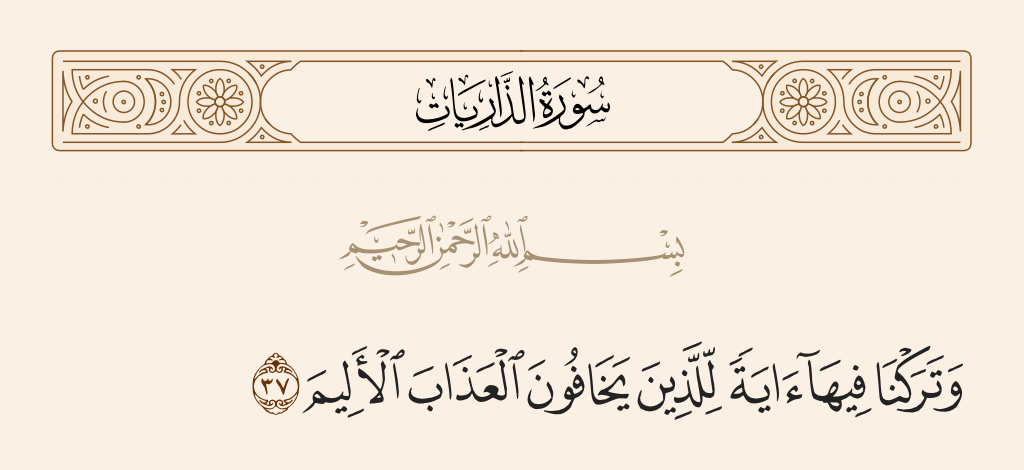 سُورَةُ الذَّارِيَاتِ
بِسْمِ ٱللَّهِ ٱلرَّحْمَٰنِ ٱلرَّحِيمِ
وَتَرَكْنَا فِيهَآ ءَايَةً لِّلَّذِينَ يَخَافُونَ ٱلْعَذَابَ ٱلْأَلِيمَ ٣٧